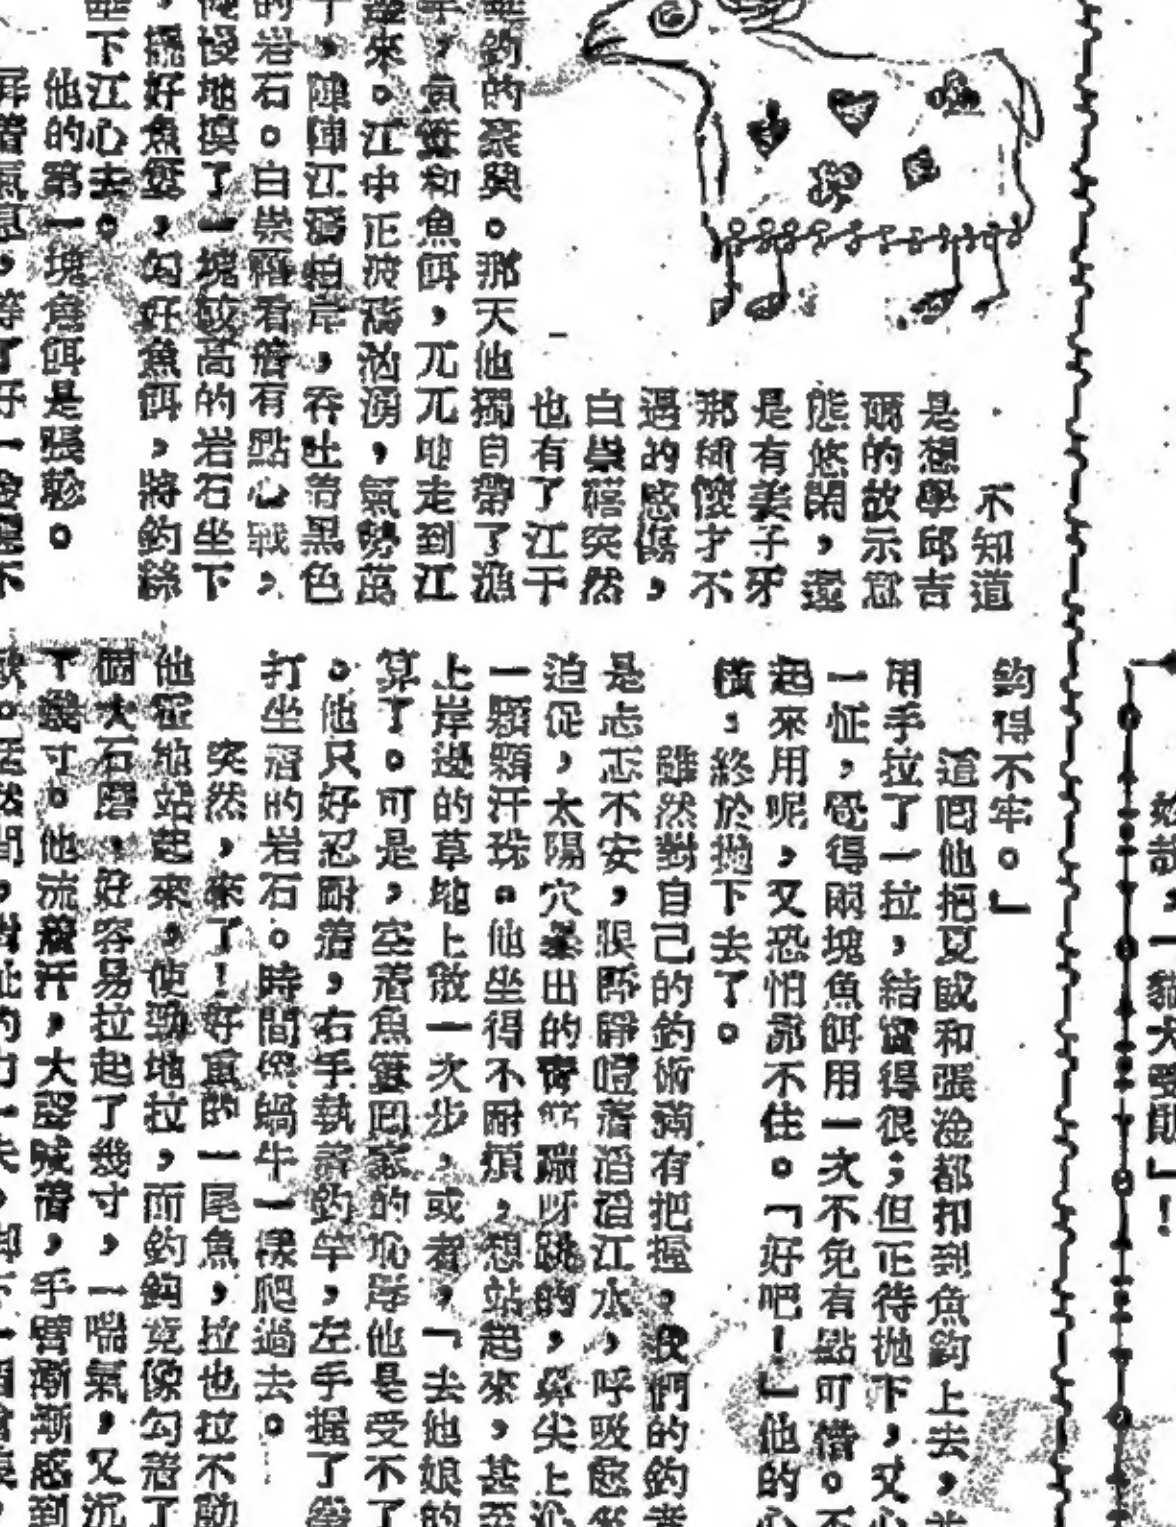 不知道
是想學邱吉
爾的故示悠
態悠閑，還
是有姜子牙
那種懷才不
遇的感傷，
白崇禧突然
也有了江干
垂釣的豪興。那天他獨自帶了漁
竿，魚簍和魚餌，兀兀地走到江
來。江中正波濤洶湧，氣勢
陣陣江濤拍岸，吞吐着黑色
的岩石。白崇禧看着有點心戰，
慢地摸了一塊較高的岩石坐下
，擺好魚簍，勾好魚餌，將釣絲
垂下江心去。
他的第一塊魚餌是張軫。
屏着氣息，等了好一會還不
鈎得不牢。」
這囘他把夏威和張淦都扣到魚鈎上去，並
用手拉了一拉，結實得很；但正待拋下，又心
一怔，覺得兩塊魚餌用一次不免有點可惜。不
起來用呢，又恐怕靠不住。「好吧！」他的心
橫，終於拋下去了。
雖然對自己的釣術滿有把握，我們的釣者
是忐忑不安，眼睜睜瞪着滔滔江水，呼吸愈
迫促，太陽穴暴出的青筋蹦呀跳的，鼻尖上沁
一顆顆汗珠。他坐得不耐煩，想站起來，甚至
上岸邊的草地上散一次步，或者，「去他娘的
算了。可是，空着魚簍囘家的恥辱他是受不了
。他只好忍耐着，右手執着釣竿，左手握了
打坐着的岩石。時間像蝸牛一樣爬過去。
突然，來了！好重的一尾魚，拉也拉不動
他站起來，使勁地拉，而釣鈎竟像勾着了
個大石磨，好容易拉起了幾寸，一喘氣，又沉
了幾寸。他流着汗，大聲喊着，手臂漸漸感到
一貂大受
！